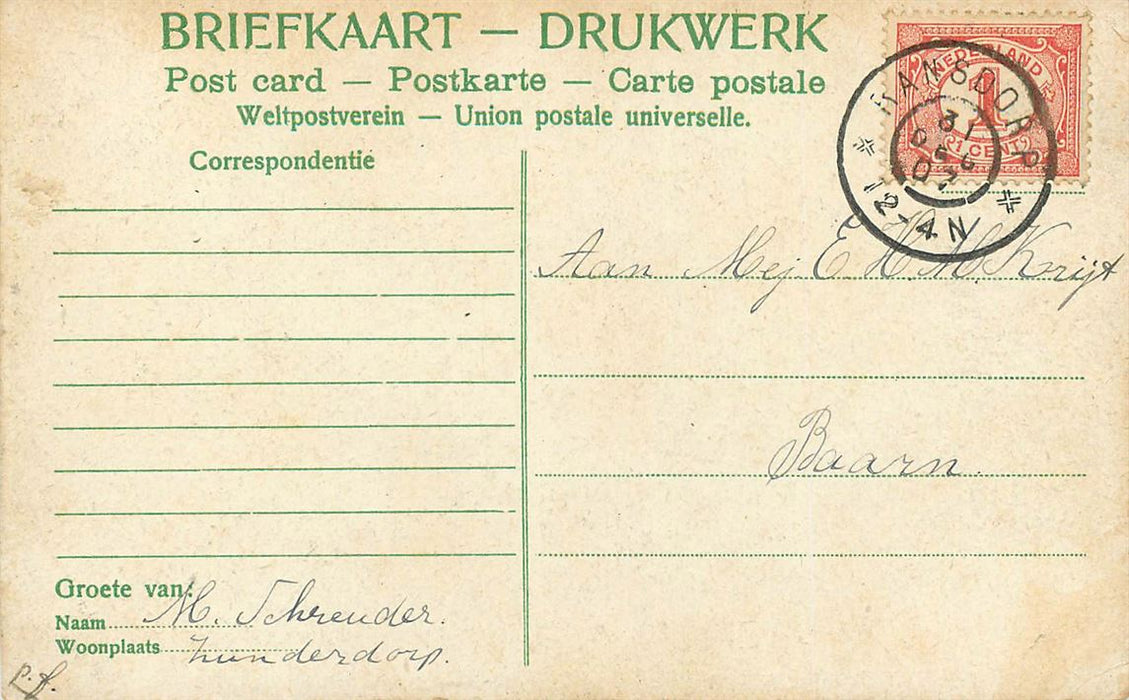 BRIEFKAART — DRUKWERK
Post card — Postkarte — Carte postale
Weltpostverein — Union postale universelle.
NEDERLAND
1
1 CENT
RANSDORP
31
DEC
07
12-4N
Correspondentie
Aan Mej. E H. M. Krijt
Baarn.
Groete van:
Naam M. Schreuder.
Woonplaats Zunderdorp.
p.f.